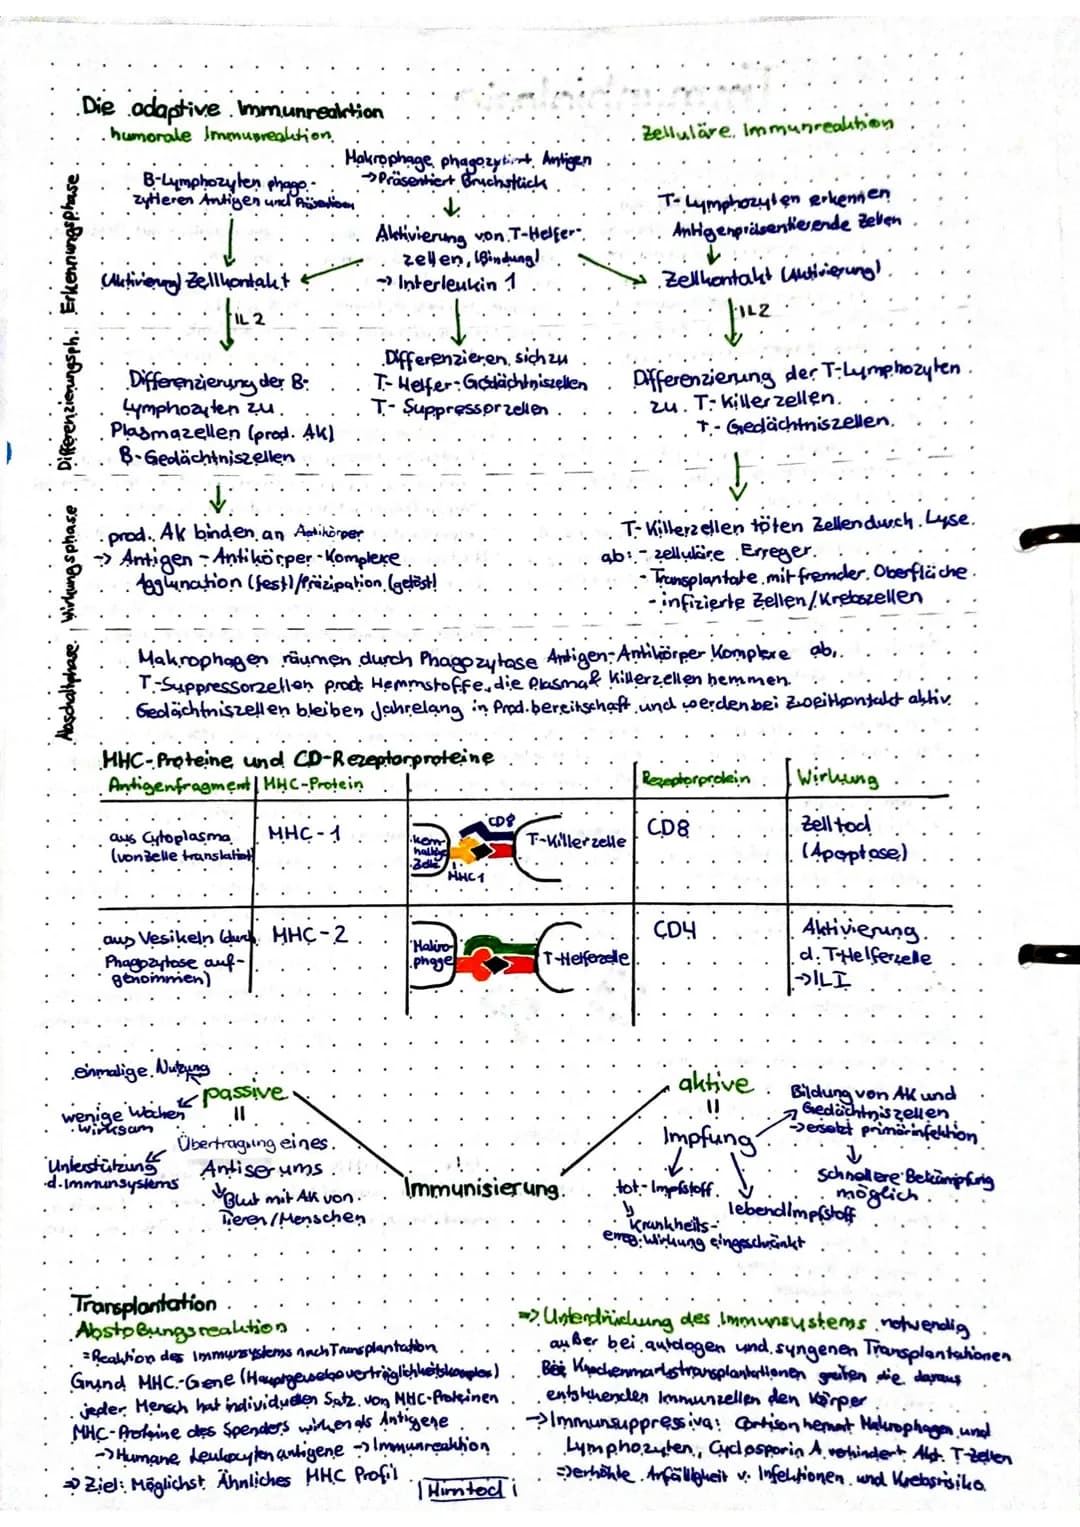 Die adaptive Immunreaktion
humorale Immunreaktion
Zelluläre Immunreaktion
Erkennungsphase
B-Lymphozyten phago-
zytieren Antigen und
Makrophage phagozytiert Antigen
→ Präsentiert Bruchstück
Aktivierung von T-Helfer-
zellen, (Bindung)
→ Interleukin 1
T-Lymphozyten erkennen
Antigenpräsentierende Zellen
(Aktivierung) Zellkontakt
Zellkontakt (Aktivierung)
IL 2
IL2
Differenzierungsph.
Differenzierung der B-
Lymphozyten zu
Plasmazellen (prod. AK)
B-Gedächtniszellen
Differenzieren sich zu
T-Helfer-Gedächtniszellen
T-Suppressorzellen
Differenzierung der T-Lymphozyten
zu T-Killerzellen
T-Gedächtniszellen
Wirkungsphase
prod. AK binden an Antikörper
→ Antigen-Antikörper-Komplexe
Agglunation (fest)/Präzipation (gelöst)
T-Killerzellen töten Zellen durch Lyse
ab: - zelluläre Erreger
- Transplantate mit fremder Oberfläche
- infizierte Zellen/Krebszellen
Abschaltphase
Makrophagen räumen durch Phagozytose Antigen-Antikörper Komplexe ab,
T-Suppressorzellen prod. Hemmstoffe, die Plasma & Killerzellen hemmen
Gedächtniszellen bleiben Jahrelang in Prod.bereitschaft und werden bei Zweitkontakt aktiv
MHC-Proteine und CD-Rezeptorproteine
Antigenfragment MHC-Protein Rezeptorprotein Wirkung
aus Cytoplasma
(von Zelle translatiert)
MHC-1
kern-
haltige
Zelle
CD8
MHC1
T-Killerzelle
CD8
Zelltod
(Apoptose)
aus Vesikeln (durch
Phagozytose auf-
genommen)
MHC-2
Makro-
phage
T-Helferzelle
CD4
Aktivierung
d. T-Helferzelle
→ IL I
einmalige Nutzung
passive
wenige Wochen
wirksam
Übertragung eines
Antiserums
Unterstützung
d. Immunsystems
Blut mit AK von
Tieren/Menschen
Immunisierung
aktive
Impfung
Bildung von AK und
Gedächtniszellen
→ ersetzt primärinfektion
Schnellere Bekämpfung
möglich
tot-Impfstoff
lebendImpfstoff
Krankheits-
erreg. Wirkung eingeschränkt
Transplantation
Abstoßungsreaktion
= Reaktion des Immunsystems nach Transplantation
Grund MHC-Gene (Hauptgewebeverträglichkeitskomplex)
jeder Mensch hat individuellen Satz von MHC-Proteinen
MHC-Proteine des Spenders wirken als Antigene
→ Humane Leukocyten antigene → Immunreaktion
⇒ Ziel: Möglichst Ähnliches MHC Profil
Hirntod
⇒ Unterdrückung des Immunsystems notwendig
außer bei autologen und syngenen Transplantationen
Bei Knochenmarkstransplantationen greifen die daraus
entstehenden Immunzellen den Körper
→ Immunsuppressiva: Cortison hemmt Makrophagen und
Lymphozyten, Cyclosporin A verhindert Akt. T-Zellen
⇒ erhöhte Anfälligkeit v. Infektionen und Krebsrisiko